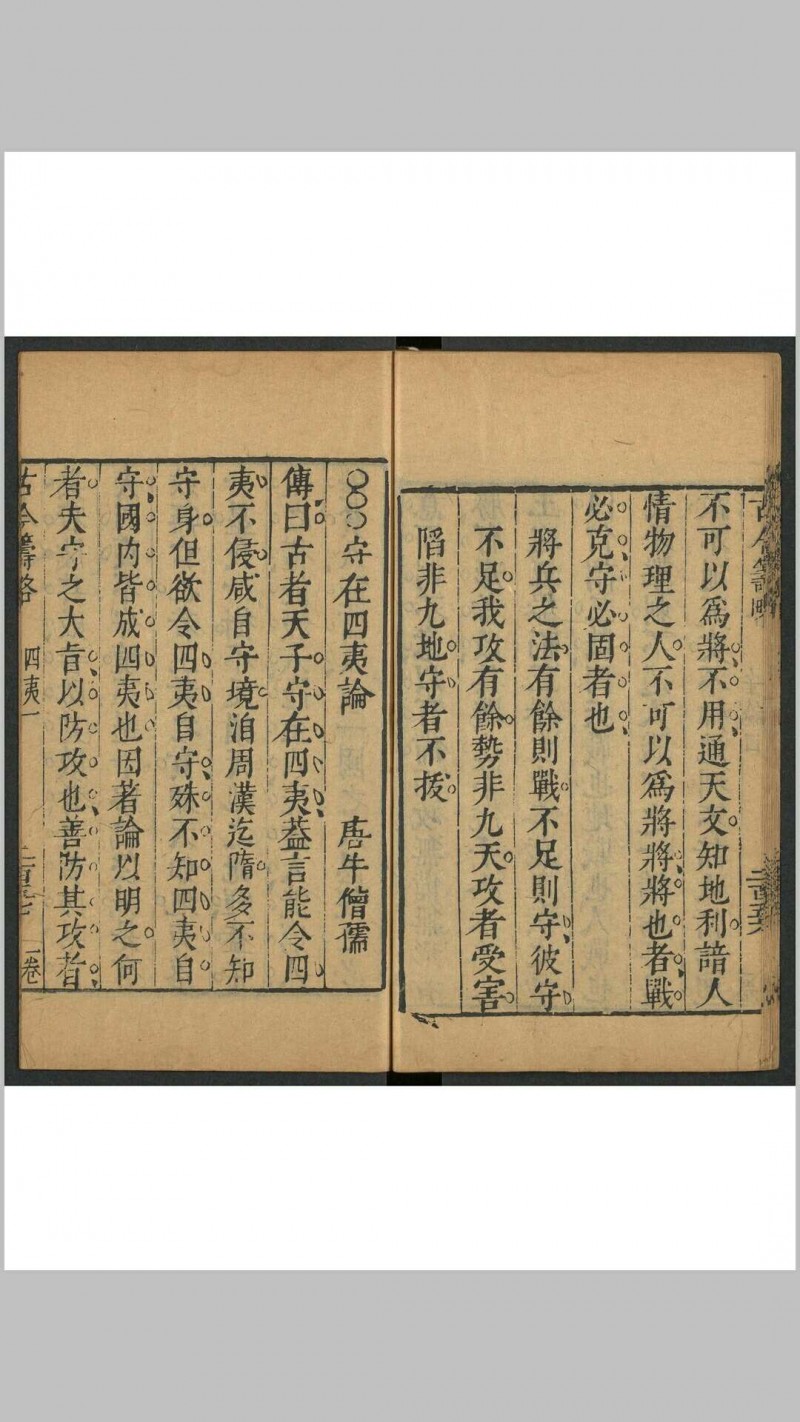 古今籌略
不可以爲將不用通天文知地利諳人
情物理之人不可以爲將將將也者戰
必克守必固者也
將兵之法有餘則戰不足則守彼守
不足我攻有餘勢非九天攻者受害
陷非九地守者不拔
〇〇〇守在四夷論 唐牛僧孺
傳曰古者天子守在四夷葢言能令四
夷不侵咸自守境洎周漢迄隋多不知
守身但欲令四夷自守殊不知四夷自
守國内皆成四夷也因著論以明之何
者夫守之大旨以防攻也善防其攻者
古今籌略 四夷一 一卷